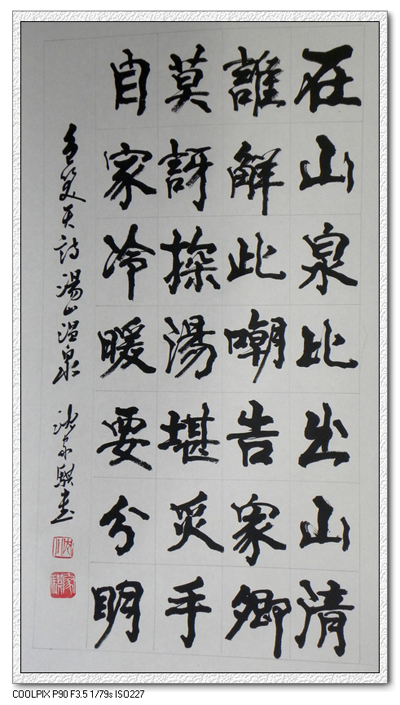 在山泉比出山清
誰解此嘲告家卿
莫訝探湯堪炙手
自家冷暖要分明
笑天詩湯山温泉 書
COOLPIX P90 F3.5 1/79s ISO227